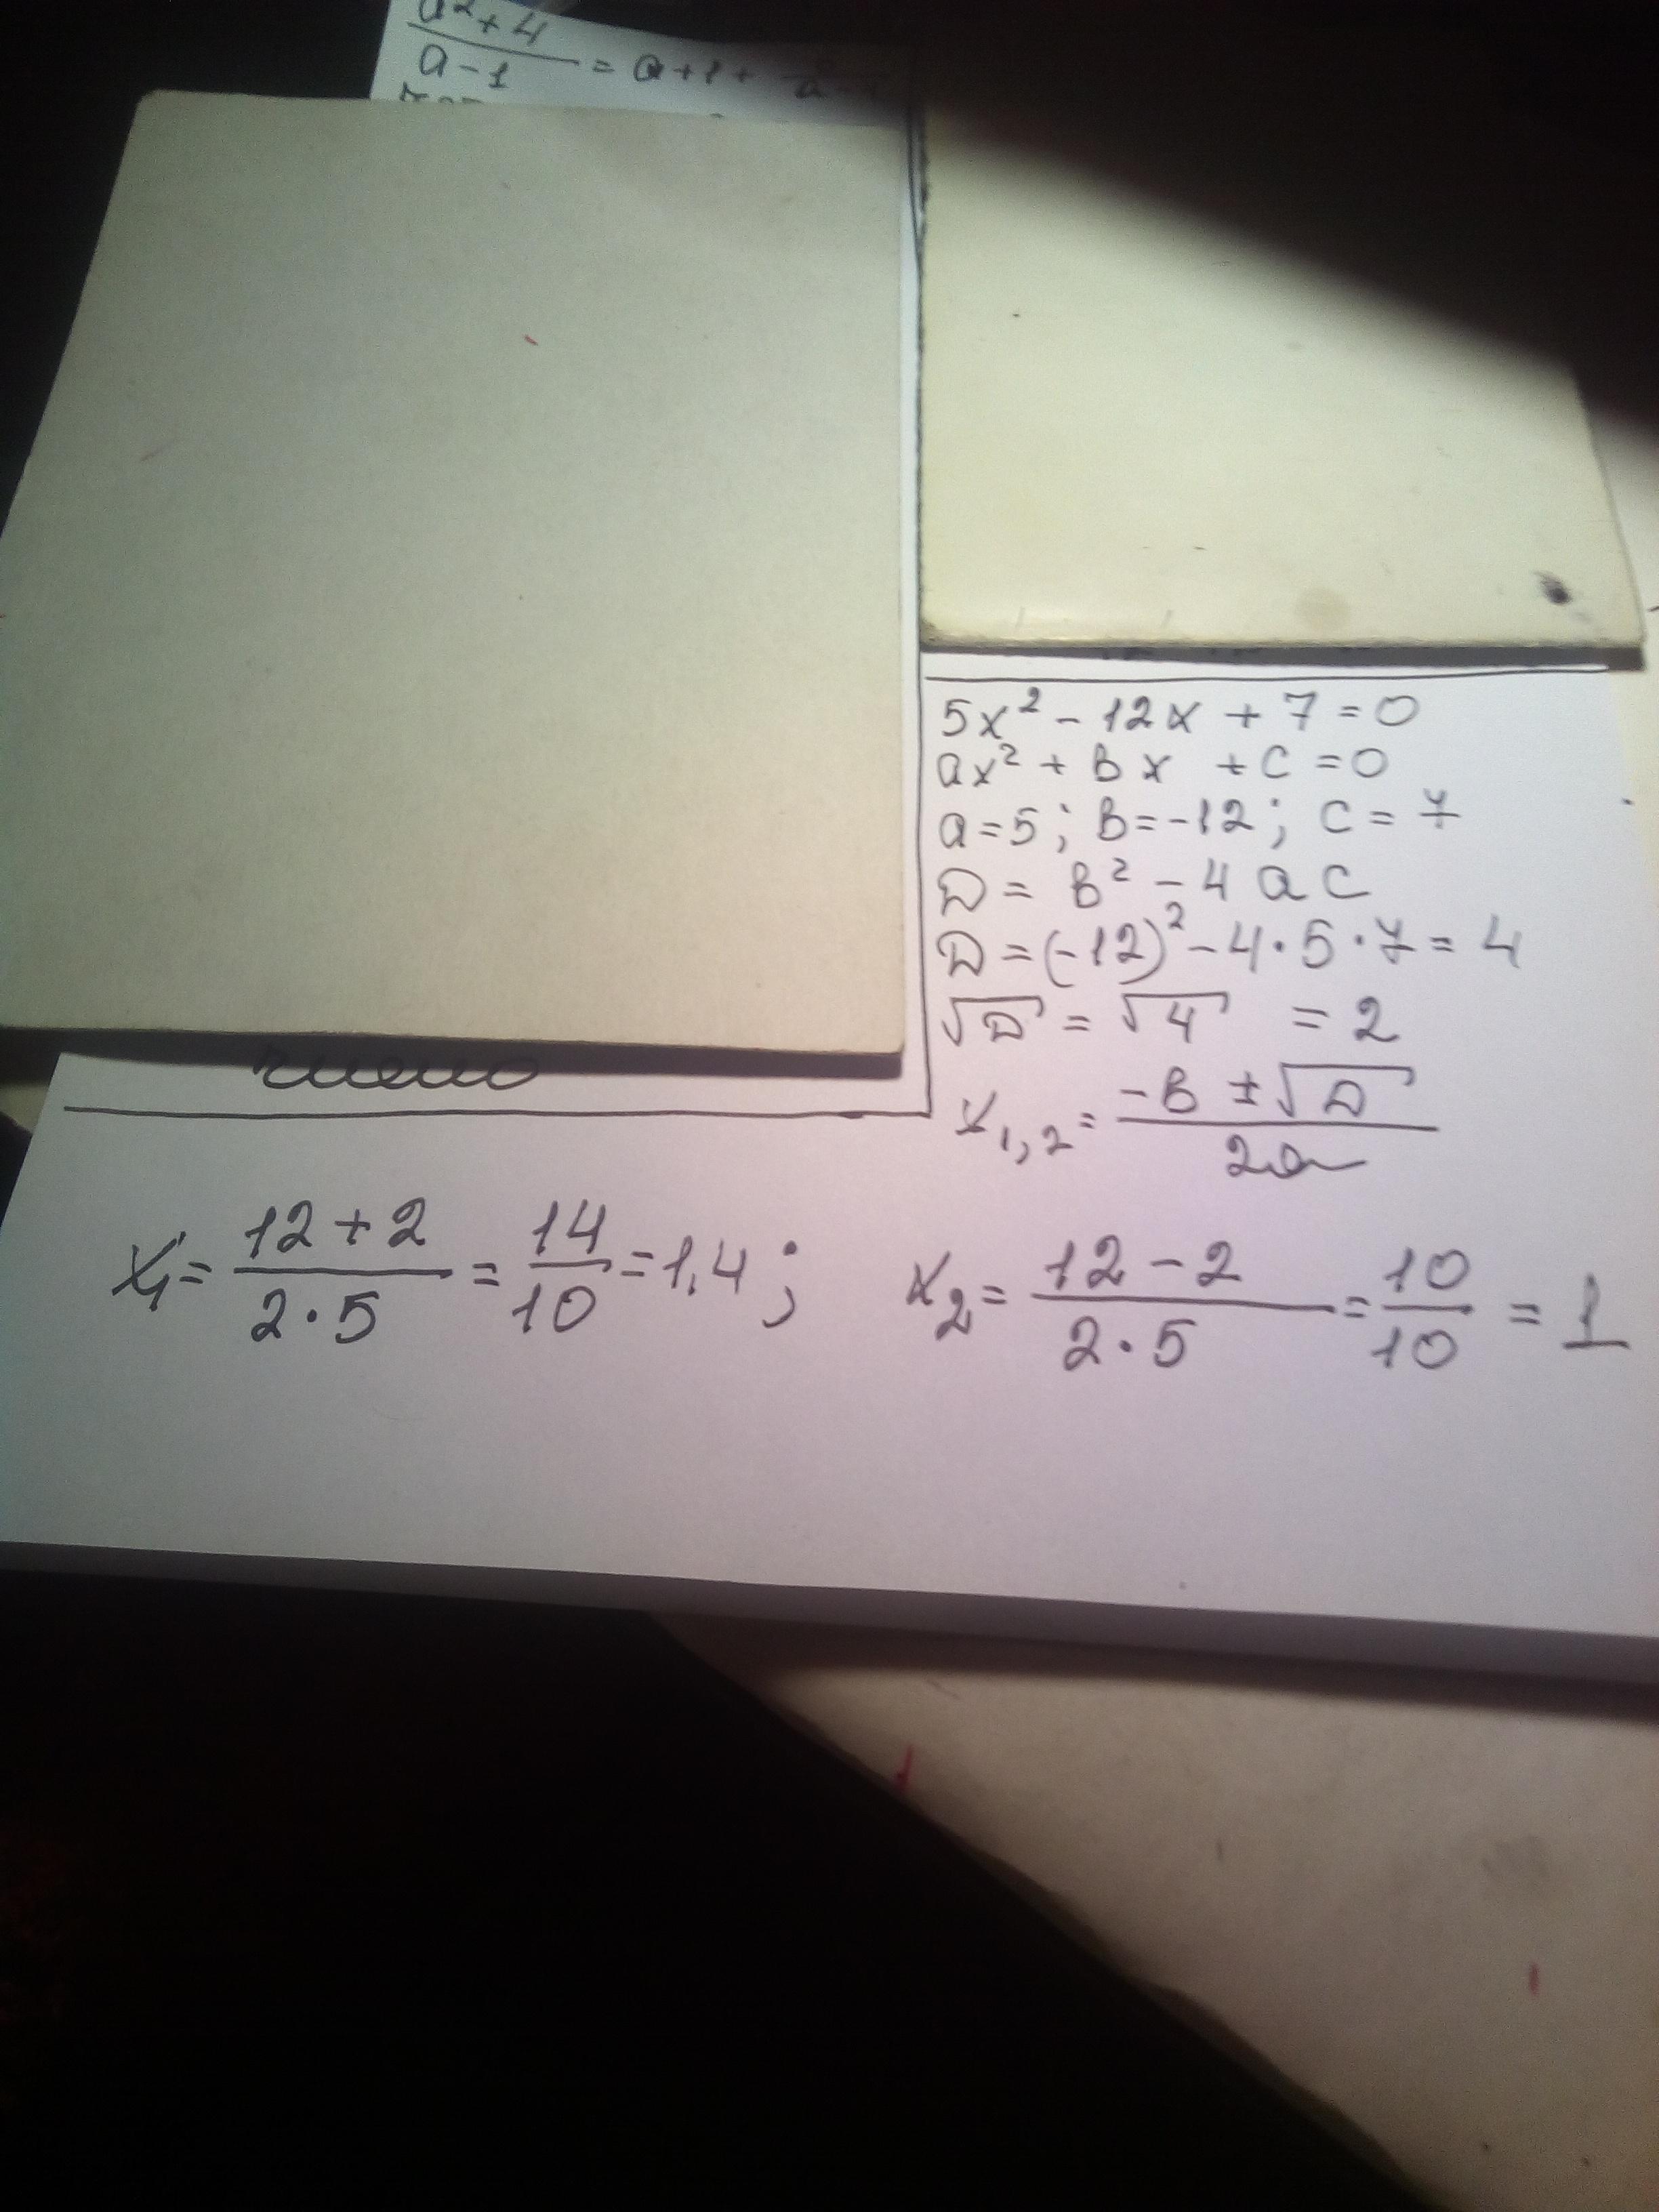 a²+4
a-1 = a+1+
5x² - 12x + 7 = 0
ax² + bx + c = 0
a=5; b=-12; c=7
D = b² - 4ac
D = (-12)² - 4·5·7 = 4
√D = √4 = 2
x₁,₂ = (-b ± √D)/2a
x₁ = (12+2)/(2·5) = 14/10 = 1,4; x₂ = (12-2)/(2·5) = 10/10 = 1